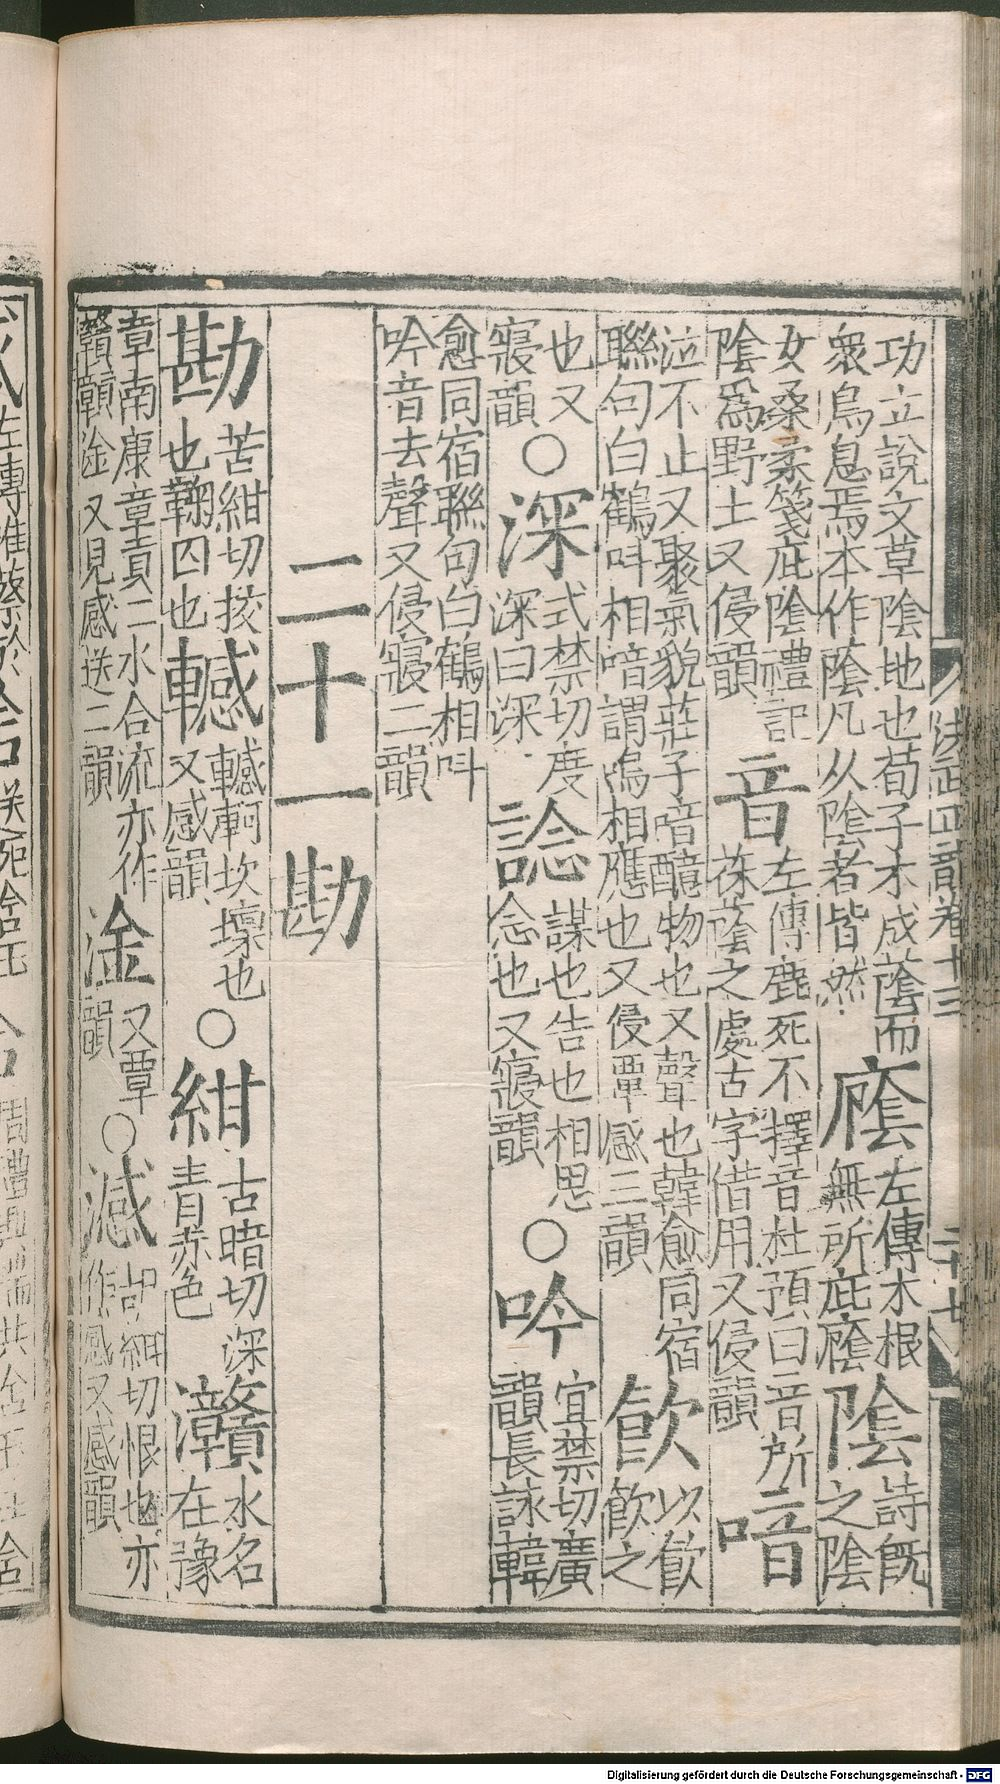 洪武正韻卷十三 二十七
功立說文草陰地也荀子木成蔭而衆鳥息焉本作蔭凡从陰者皆然廕左傳木根無所庇廕陰詩旣之陰
女桑柔箋庇陰禮記陰爲野土又侵韻音左傳鹿死不擇音杜預曰音所茠蔭之處古字借用又侵韻喑
泣不止又聚氣貌莊子喑醷物也又聲也韓愈同宿聯句白鶴呌相喑謂鳴相應也又侵覃感三韻飮以飮飮之
也又寑韻○深式禁切度深曰深諗謀也告也相思念也又寑韻○吟宜禁切廣韻長詠韓
愈同宿聯句白鶴相呌吟音去聲又侵寑二韻
二十一勘
勘苦紺切挍也鞫囚也轗轗軻坎壈也又感韻○紺古暗切深青赤色灨水名在豫
章南康章貢二水合流亦作贛淦又見感送二韻淦又覃韻○憾胡紺切恨也亦作感又感韻
Digitalisierung gefördert durch die Deutsche Forschungsgemeinschaft - DFG